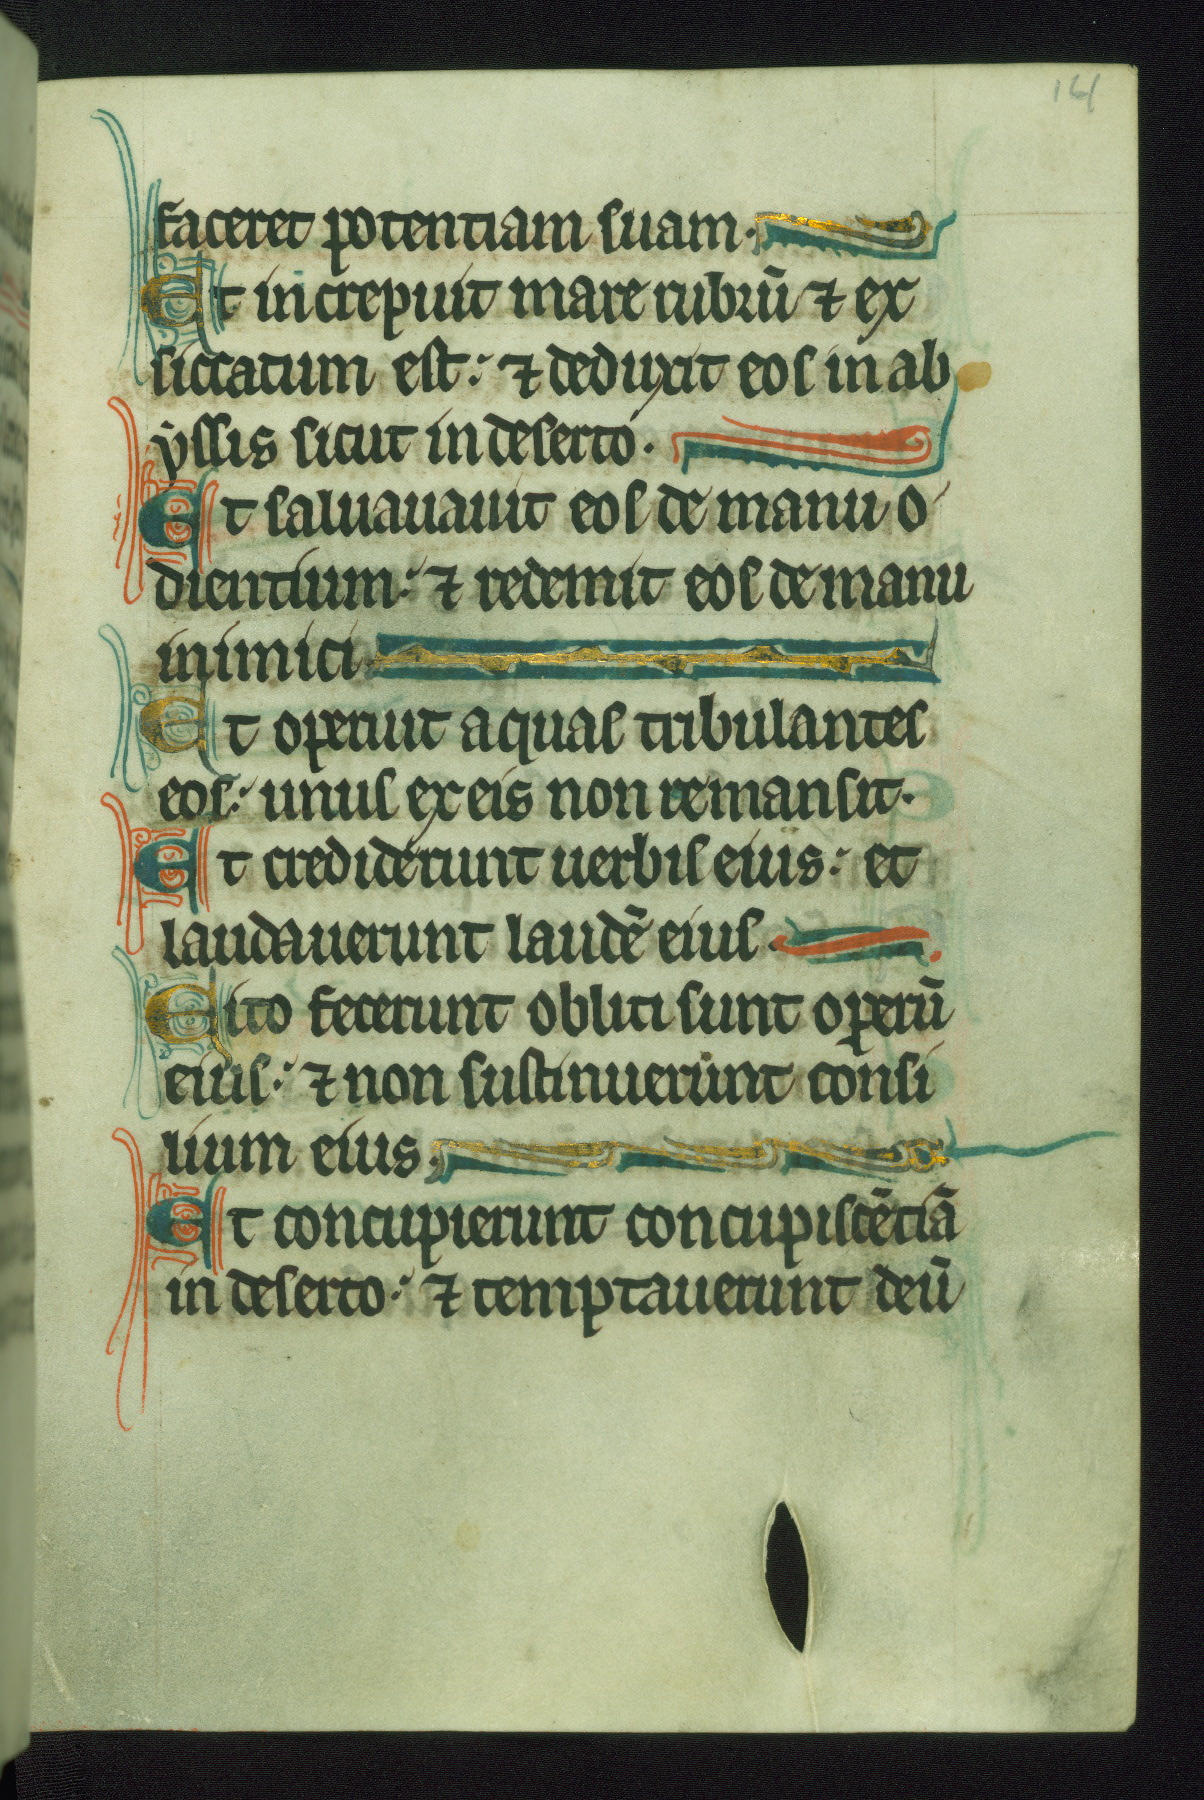 161
faceret potentiam suam.
Et increpuit mare rubrū ⁊ ex
siccatum est: ⁊ deduxit eos in ab
yssis sicut in deserto.
Et saluauauit eos de manu o
dientium: ⁊ redemit eos de manu
inimici
Et operuit aquas tribulantes
eos: unus ex eis non remansit.
Et crediderunt uerbis eius: et
laudauerunt laudē eius.
Cito fecerunt obliti sunt operū
eius: ⁊ non sustinuerunt consi
lium eius.
Et concupierunt concupiscētiā
in deserto: ⁊ temptauerunt deū